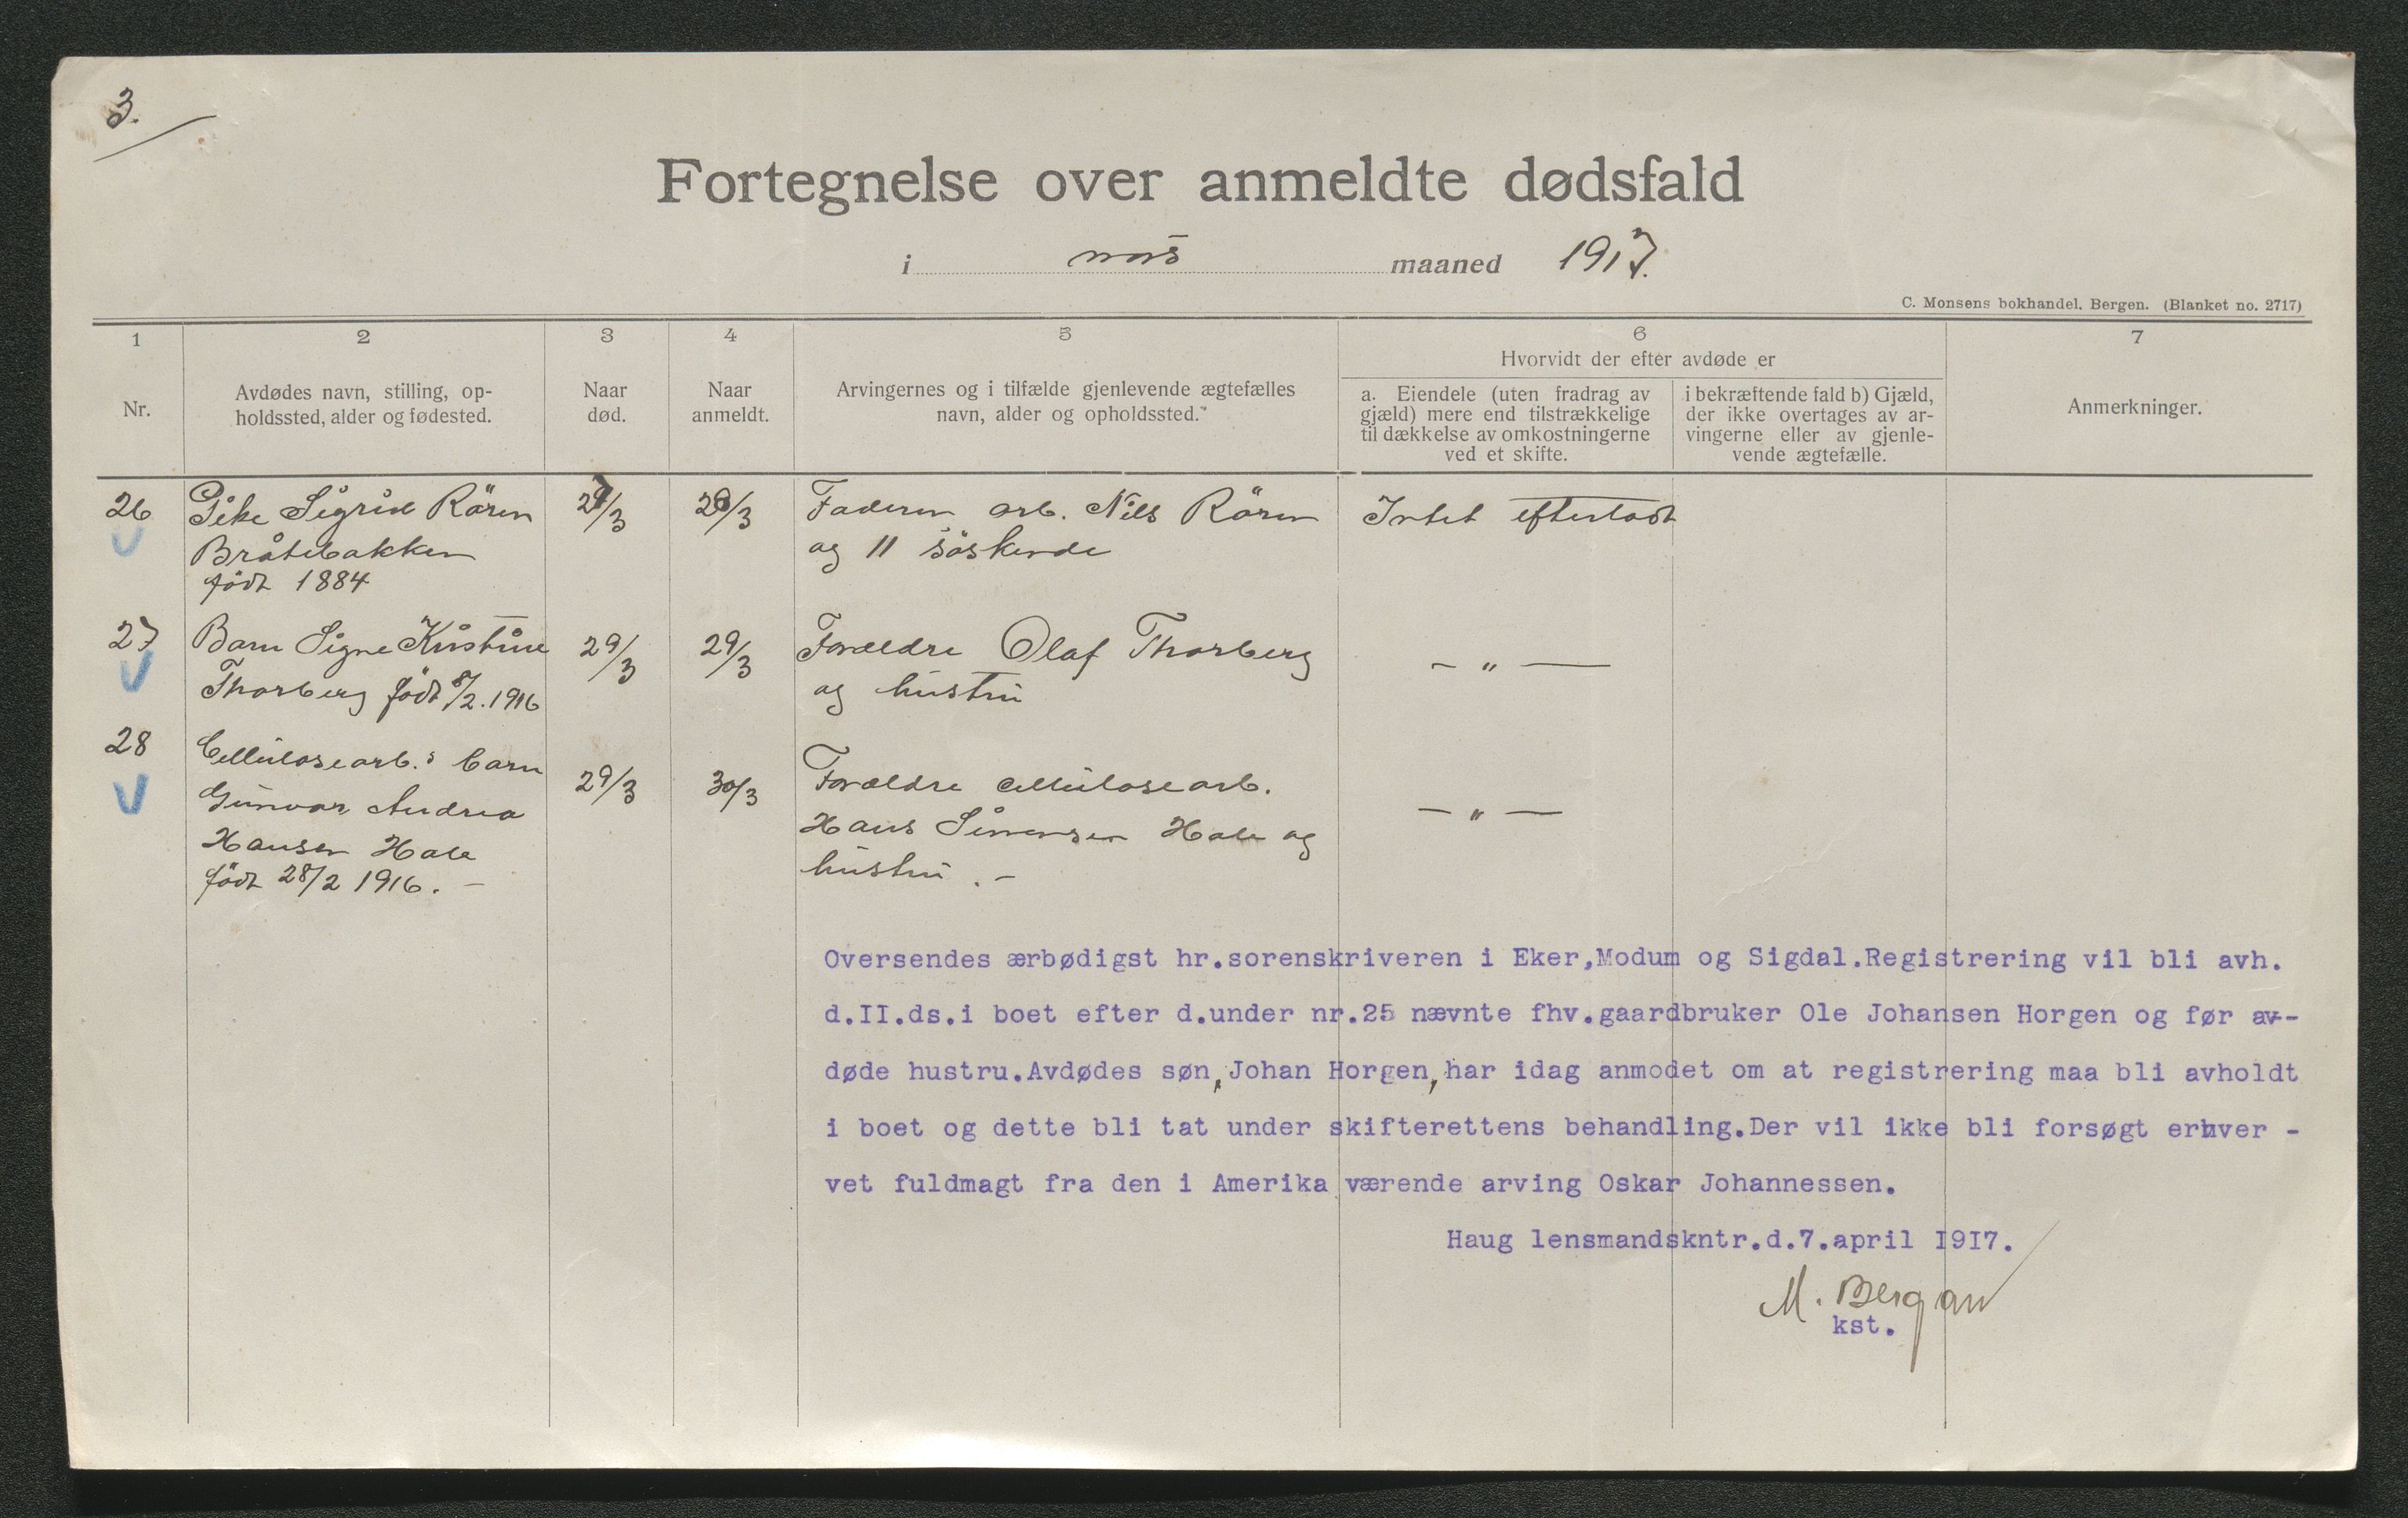 3.
Fortegnelse over anmeldte dødsfald
i mars maaned 1917.
C. Monsens bokhandel, Bergen. (Blanket no. 2717)
1
Nr.
2
Avdødes navn, stilling, op-
holdssted, alder og fødested.
3
Naar
død.
4
Naar
anmeldt.
5
Arvingernes og i tilfælde gjenlevende ægtefælles
navn, alder og opholdssted.
6
Hvorvidt der efter avdøde er
a. Eiendele (uten fradrag av
gjæld) mere end tilstrækkelige
til dækkelse av omkostningerne
ved et skifte.
i bekræftende fald b) Gjæld,
der ikke overtages av ar-
vingerne eller av gjenle-
vende ægtefælle.
7
Anmerkninger.
26
Pike Sigrid Rören
Bråtebakken
födt 1884
27/3
28/3
Faderen arb. Nils Rören
og 11 söskende
Intet efterladt
27
Barn Signe Kristine
Thorberg födt 8/2. 1916
29/3
29/3
Forældre Olaf Thorberg
og hustru
— " —
28
Cellulosearb.s barn
Gunvor Andrea
Hansen Hole
födt 28/2 1916. —
29/3
30/3
Forældre cellulosearb.
Hans Simensen Hole og
hustru. —
— " —
Oversendes ærbødigst hr.sorenskriveren i Eker,Modum og Sigdal.Registrering vil bli avh.
d.II.ds.i boet efter d.under nr.25 nævnte fhv.gaardbruker Ole Johansen Horgen og før av-
døde hustru.Avdødes søn, Johan Horgen, har idag anmodet om at registrering maa bli avholdt
i boet og dette bli tat under skifterettens behandling.Der vil ikke bli forsøgt erhver -
vet fuldmagt fra den i Amerika værende arving Oskar Johannessen.
Haug lensmandskntr.d.7.april I9I7.
M. Bergan
kst.